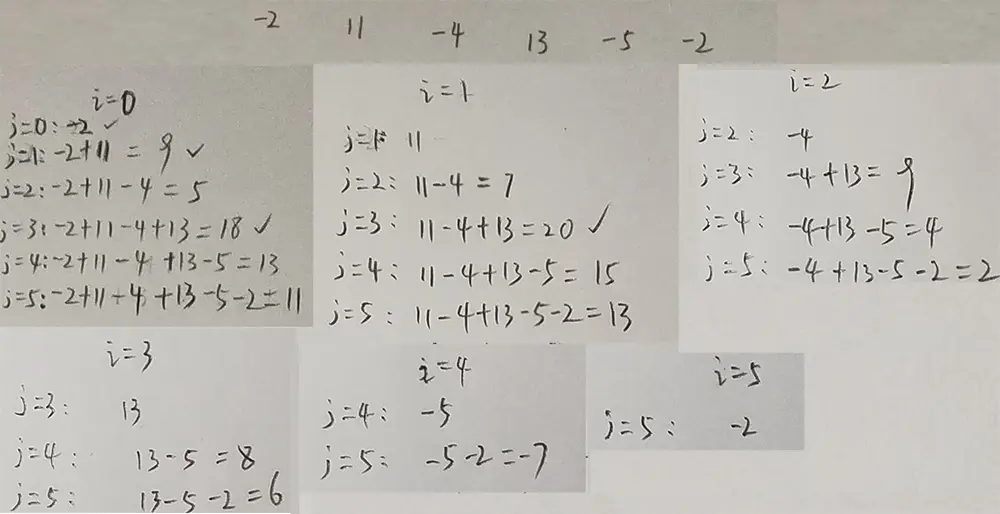 -2 11 -4 13 -5 -2
i=0
j=0: -2 ✓
j=1: -2+11 = 9 ✓
j=2: -2+11-4 = 5
j=3: -2+11-4+13=18 ✓
j=4: -2+11-4+13-5=13
j=5: -2+11-4+13-5-2=11
i=1
j=1: 11
j=2: 11-4=7
j=3: 11-4+13=20 ✓
j=4: 11-4+13-5=15
j=5: 11-4+13-5-2=13
i=2
j=2: -4
j=3: -4+13=9
j=4: -4+13-5=4
j=5: -4+13-5-2=2
i=3
j=3: 13
j=4: 13-5=8
j=5: 13-5-2=6
i=4
j=4: -5
j=5: -5-2=-7
i=5
j=5: -2